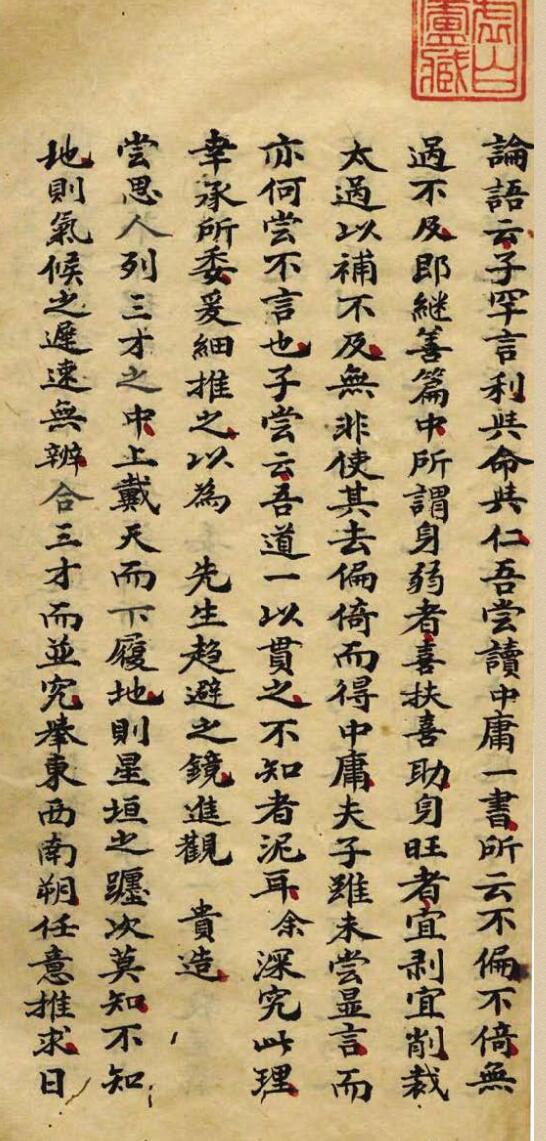 論語云子罕言利與命與仁吾嘗讀中庸一書所云不偏不倚無
過不及即継善篇中所謂身弱者喜扶喜助身旺者宜剥宜削裁
太過以補不及無非使其去偏倚而得中庸夫子雖未嘗显言而
亦何嘗不言也子嘗云吾道一以貫之不知者泥耳余深究此理
幸承所委爰細推之以為 先生趋避之鏡進觀 貴造
尝思人列三才之中上戴天而下履地則星垣之躔次莫知不知
地則氣候之遲速無辨合三才而並究舉東西南朔任意推求日